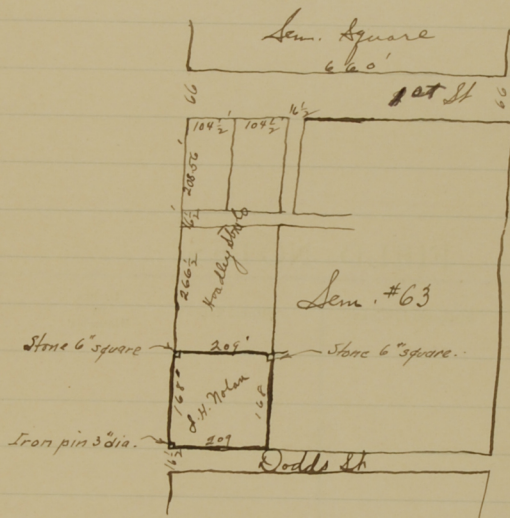 Sem. Square
660'
66
66
1st St
16½
104½' 104½'
208.56
16½
266½
Hoadley Stone Co
Sem. #63
Stone 6" square
209'
Stone 6" square.
168'
J. H. Nolan
168
Iron pin 3" dia.
209
16½
Dodds St